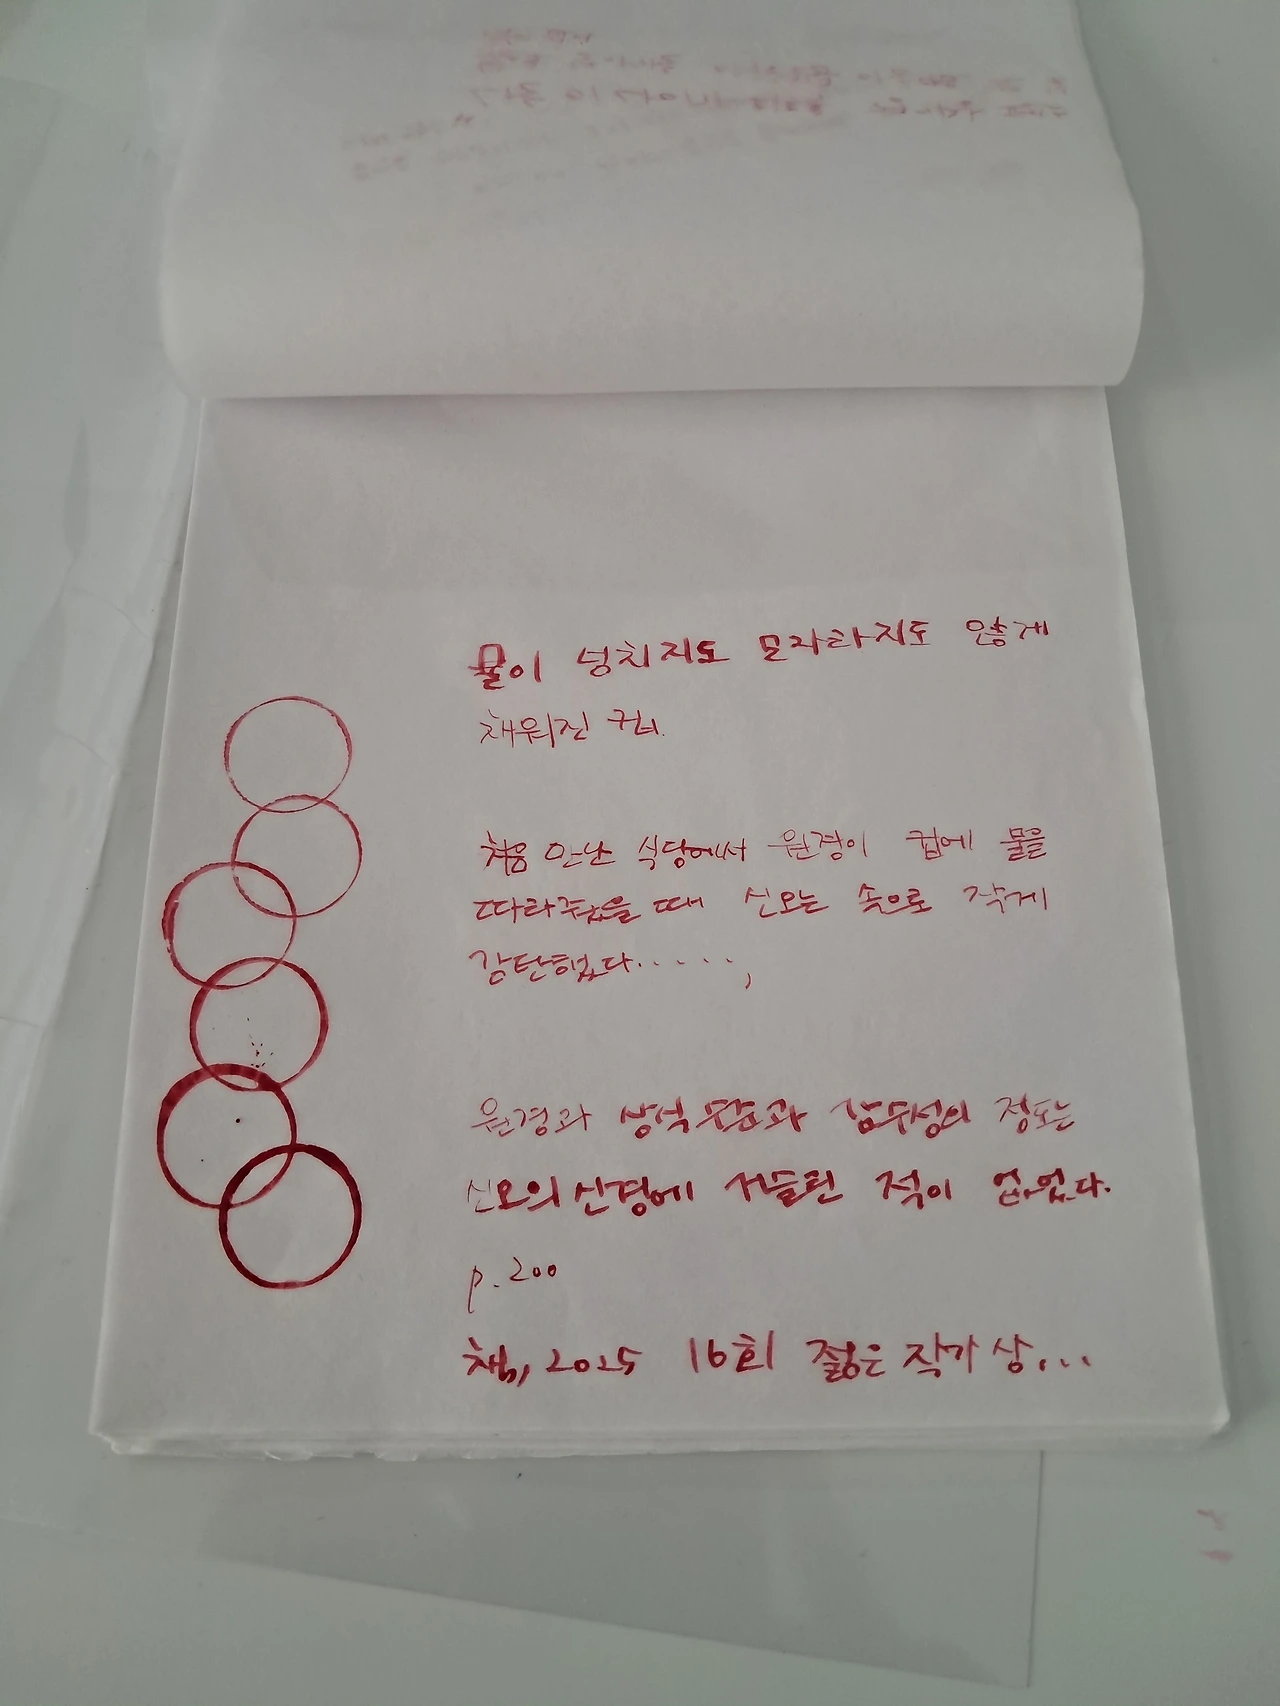 물이 넘치지도 모자라지도 않게
채워진 컵.
처음 만난 식당에서 원경이 컵에 물을
따라주었을 때 신오는 속으로 작게
감탄했다......,
원경과 상식 수준과 감수성의 정도는
신오의 신경에 거슬린 적이 없었다.
p.200
책, 2025 16회 젊은 작가 상...